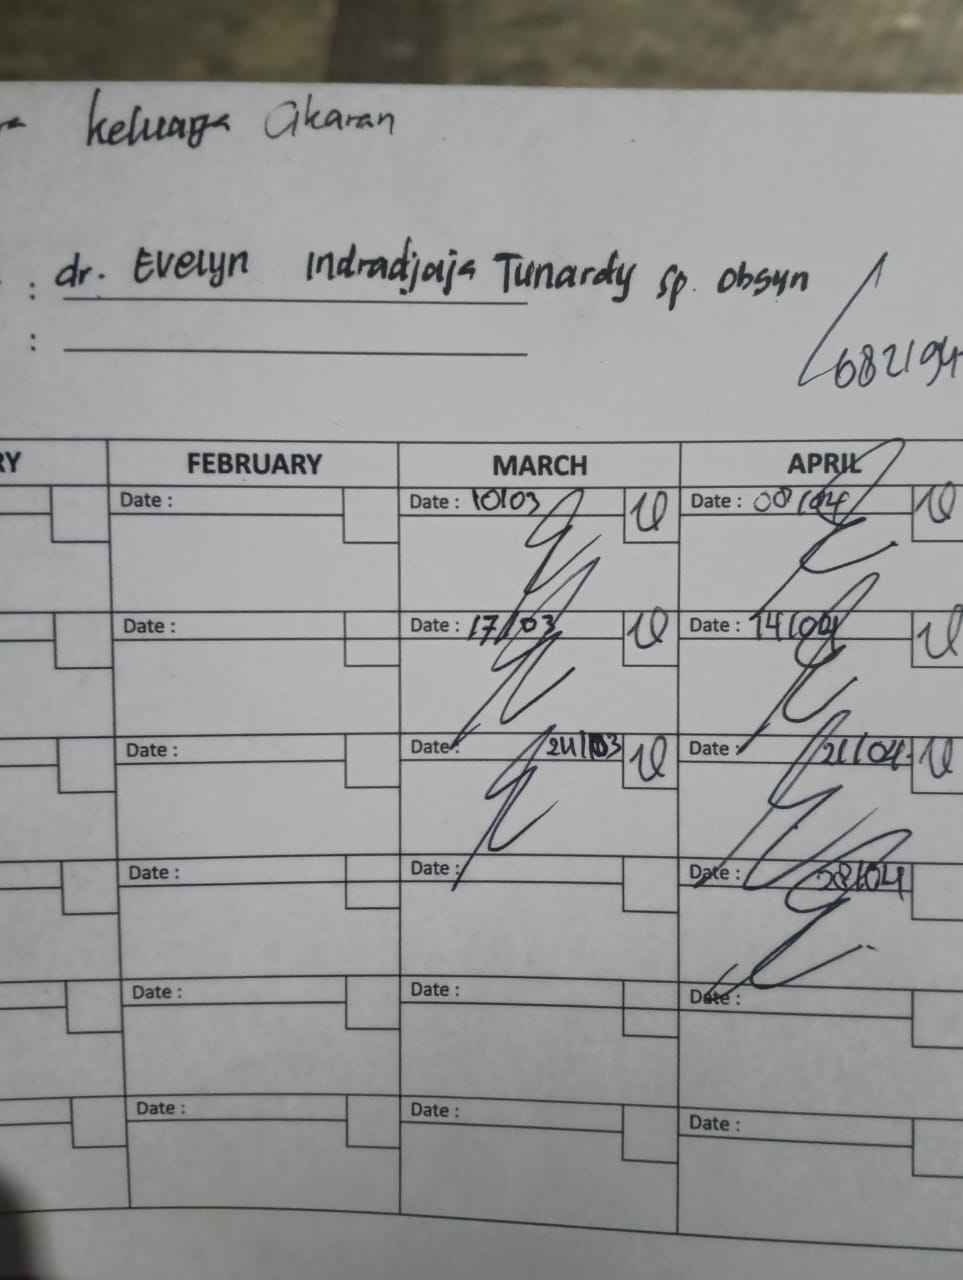 keluaga Akaran
: dr. Evelyn Indradjaja Tunardy sp. obgyn
:
68219
FEBRUARY MARCH APRIL
Date : Date : 10/03 Date : 08/04
Date : Date : 17/03 Date : 14/04
Date : Date : 24/03 Date : 21/04
Date : Date : Date : 28/04
Date : Date : Date :
Date : Date : Date :